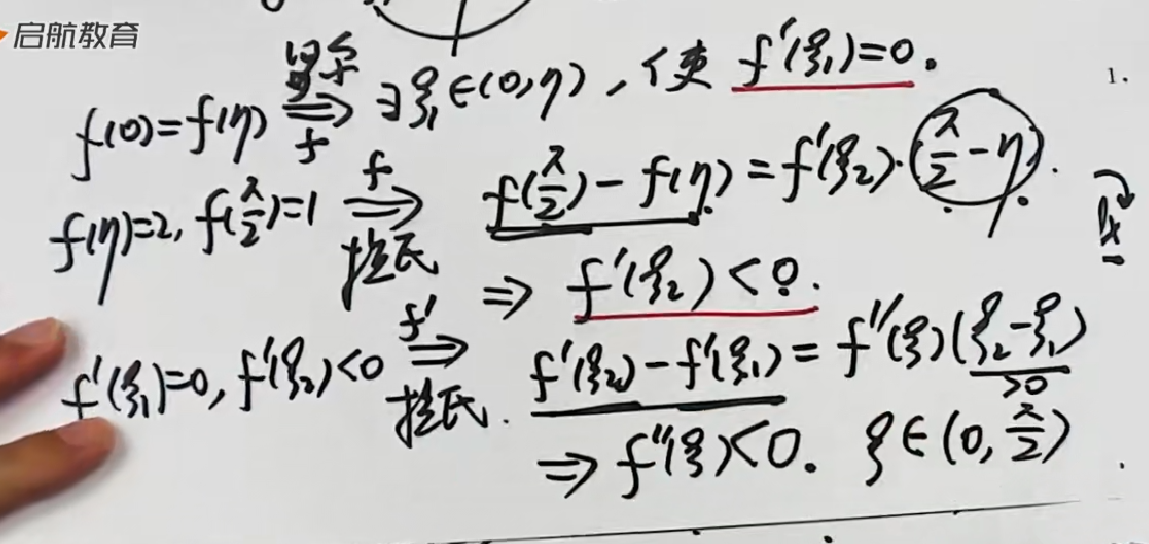 启航教育
f(0)=f(η) 罗尔⇒f ∃ξ₁∈(0,η), 使 f'(ξ₁)=0.
1.
f(η)=2, f(π/2)=1 f⇒拉氏 f(π/2)-f(η)=f'(ξ₂)·(π/2-η).
⇒ f'(ξ₂)<0.
f'(ξ₁)=0, f'(ξ₂)<0 f'⇒拉氏. f'(ξ₂)-f'(ξ₁)=f''(ξ)(ξ₂-ξ₁)
>0
⇒ f''(ξ)<0. ξ∈(0,π/2)